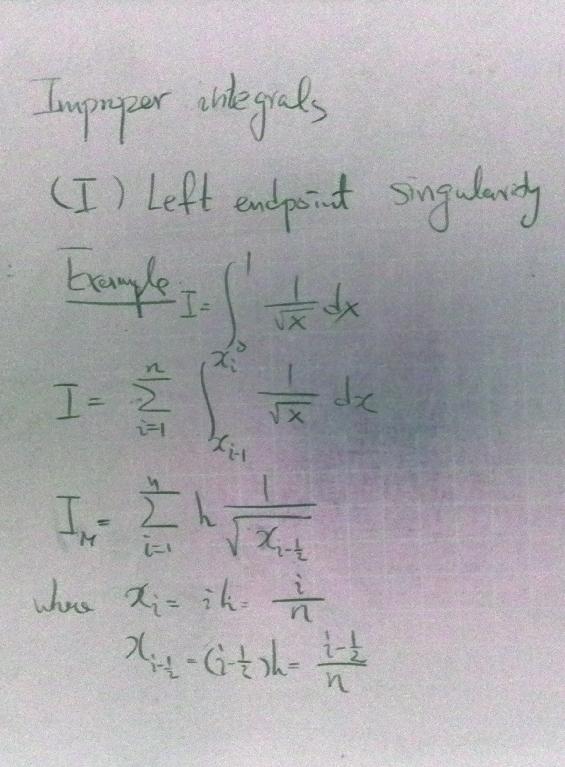 Improper integrals
(I) Left endpoint singularity
Example I = ∫_0^1 1/√x dx
I = ∑_{i=1}^{n} ∫_{x_{i-1}}^{x_i} 1/√x dx
I_M = ∑_{i=1}^{n} h 1/√(x_{i-1/2})
where x_i = ih = i/n
x_{i-1/2} = (i-1/2)h = (i-1/2)/n